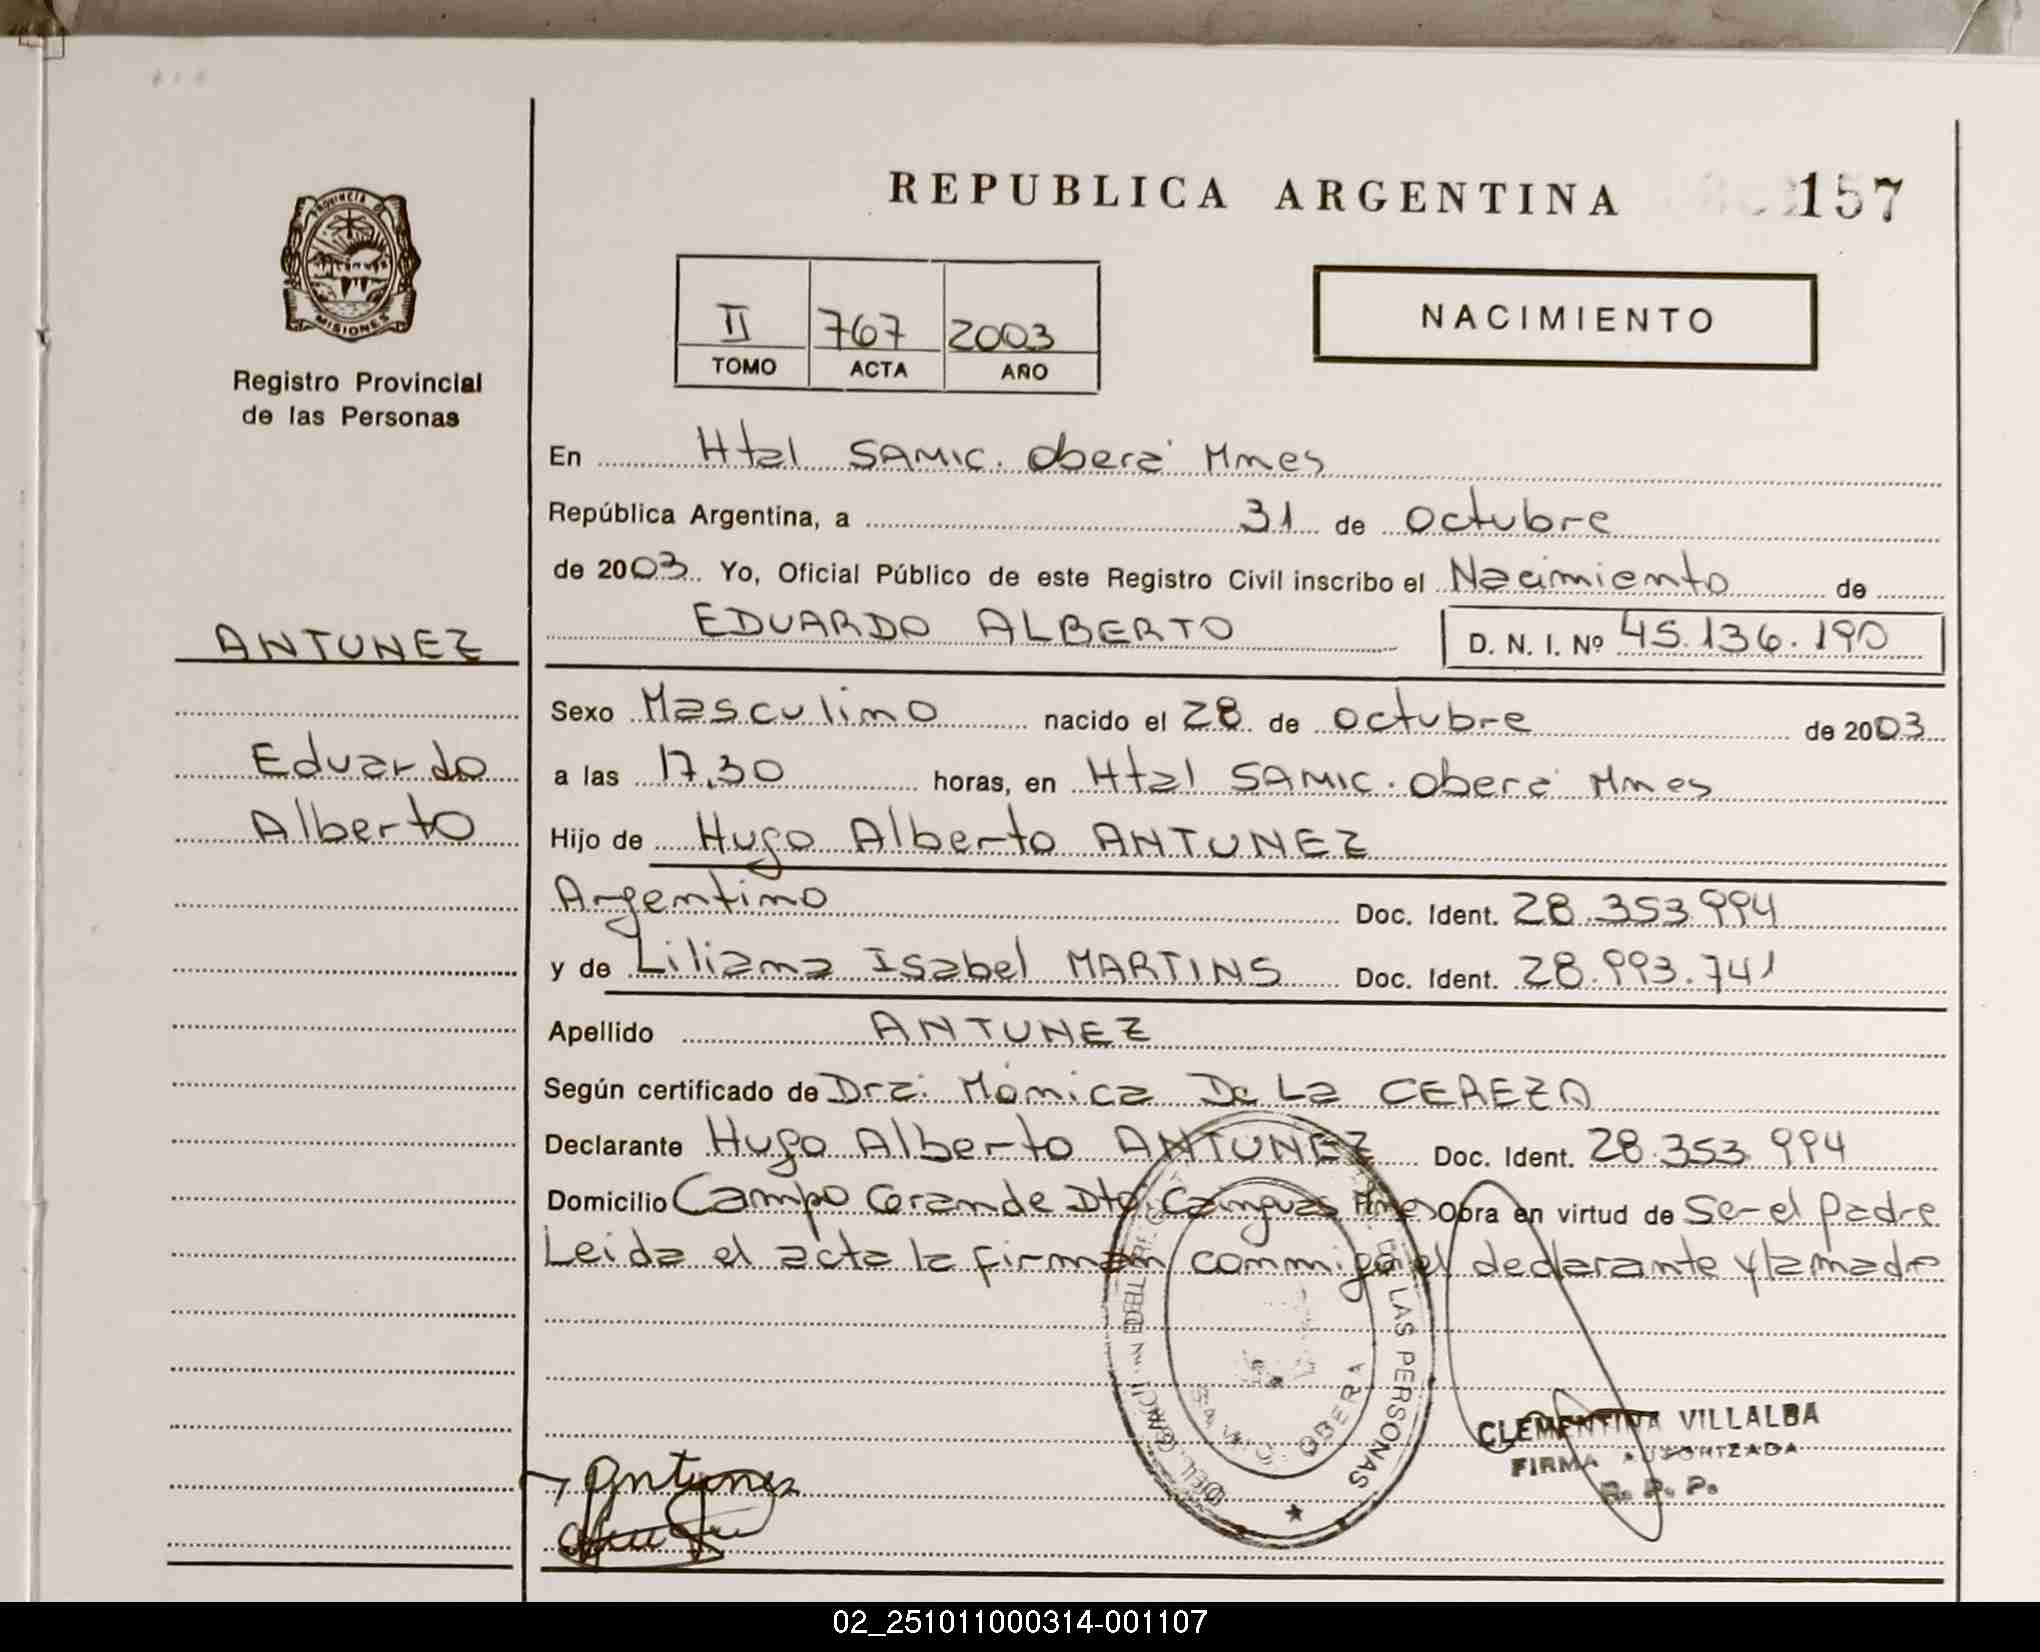 REPUBLICA ARGENTINA 157
PROVINCIA DE
MISIONES
Registro Provincial
de las Personas
II 767 2003
TOMO ACTA AÑO
NACIMIENTO
En Htal SAMIC. Oberá Mnes
República Argentina, a 31 de octubre
de 2003. Yo, Oficial Público de este Registro Civil inscribo el Nacimiento de
ANTUNEZ
EDUARDO ALBERTO D. N. I. Nº 45.136.190
Sexo Masculino nacido el 28 de octubre de 2003
Eduardo
a las 17,30 horas, en Htal SAMIC. Oberá Mnes
Alberto
Hijo de Hugo Alberto ANTUNEZ
Argentino Doc. Ident. 28.353.994
y de Liliana Isabel MARTINS Doc. Ident. 28.993.741
Apellido ANTUNEZ
Según certificado de Dra. Mónica De La CEREZA
Declarante Hugo Alberto ANTUNEZ Doc. Ident. 28.353.994
Domicilio Campo Grande Dto. Cainguas Mnes Obra en virtud de Ser el padre
Leida el acta la firman conmigo el declarante y la madre
LAS PERSONAS
OBERA
CLEMENTINA VILLALBA
FIRMA AUTORIZADA
R. P. P.
Antunez
02_251011000314-001107